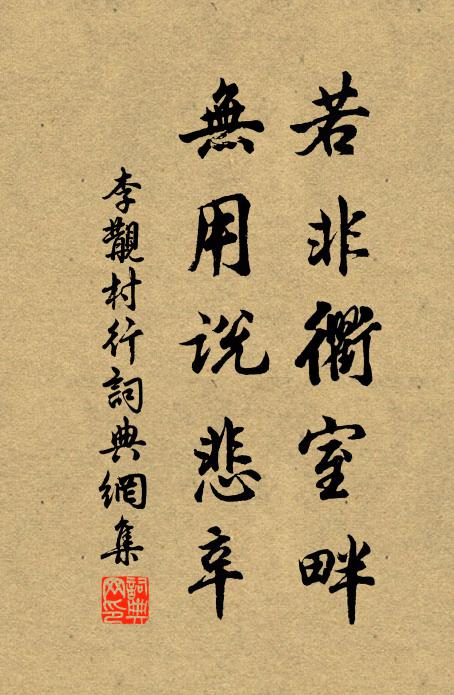 若非衢室畔
無用說悲辛
李覯村行詞典網集
詞典
网印